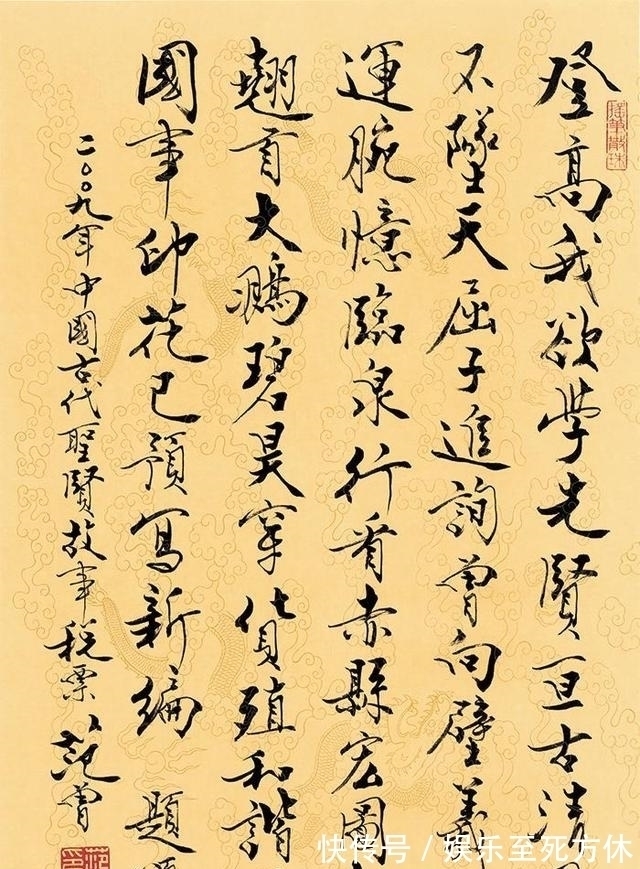 登高我欲學先賢亘古清
不墜天屈子追詢曾向壁羲
運腕憶臨泉行看赤縣宏圖
翹首大鵬碧昊穿貨殖和諧
國事印花已預寫新編 題
二〇〇九年中國古代聖賢故事税票 范曾
快传号 / 娱乐至死方休